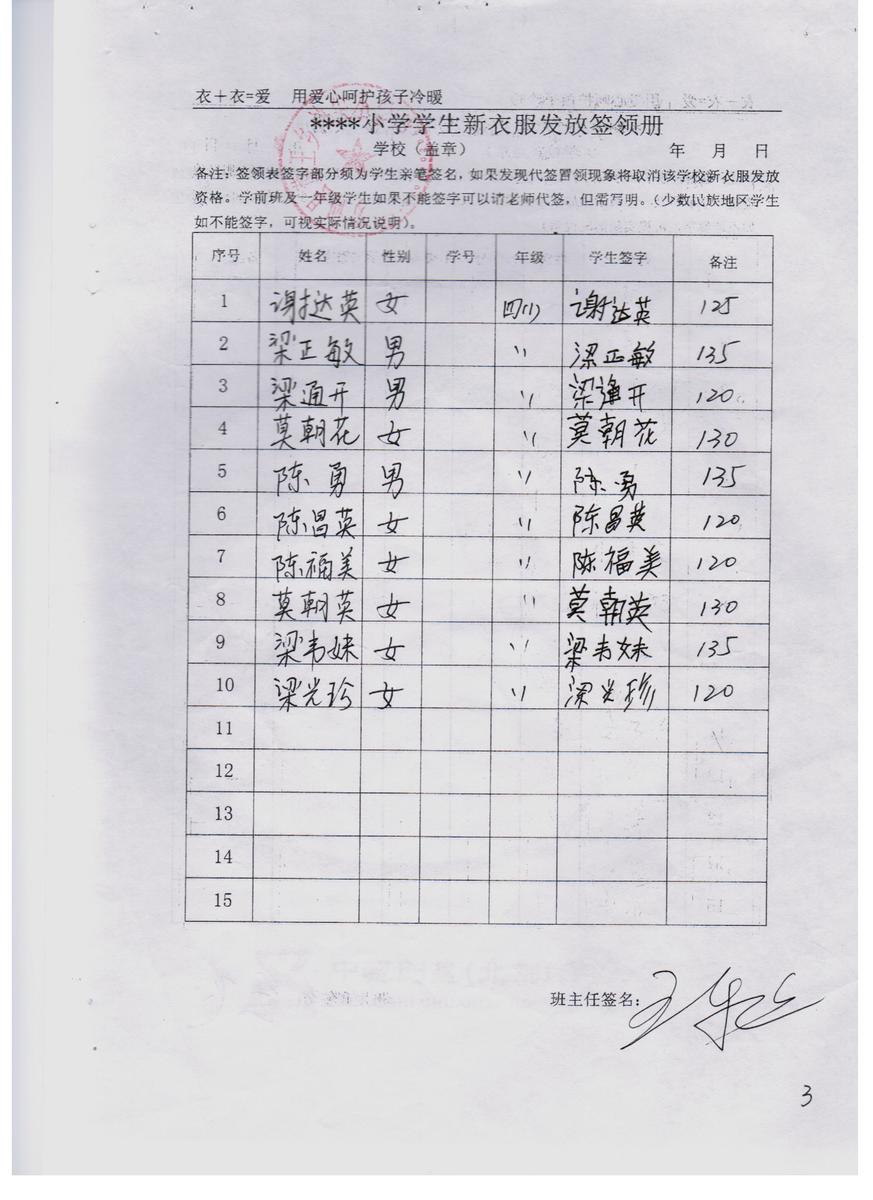 衣+衣=爱 用爱心呵护孩子冷暖
****小学学生新衣服发放签领册
学校（盖章） 年 月 日
备注：签领表签字部分须为学生亲笔签名，如果发现代签冒领现象将取消该学校新衣服发放
资格。学前班及一年级学生如果不能签字可以请老师代签，但需写明。（少数民族地区学生
如不能签字，可视实际情况说明）。
序号 姓名 性别 学号 年级 学生签字 备注
1 谢挞英 女 四(1) 谢达英 125
2 梁正敏 男 〃 梁正敏 135
3 梁通开 男 〃 梁通开 120
4 莫朝花 女 〃 莫朝花 130
5 陈勇 男 〃 陈勇 135
6 陈昌英 女 〃 陈昌英 120
7 陈福美 女 〃 陈福美 120
8 莫朝英 女 〃 莫朝英 130
9 梁韦妹 女 〃 梁韦妹 135
10 梁光珍 女 〃 梁光珍 120
11
12
13
14
15
班主任签名：
3